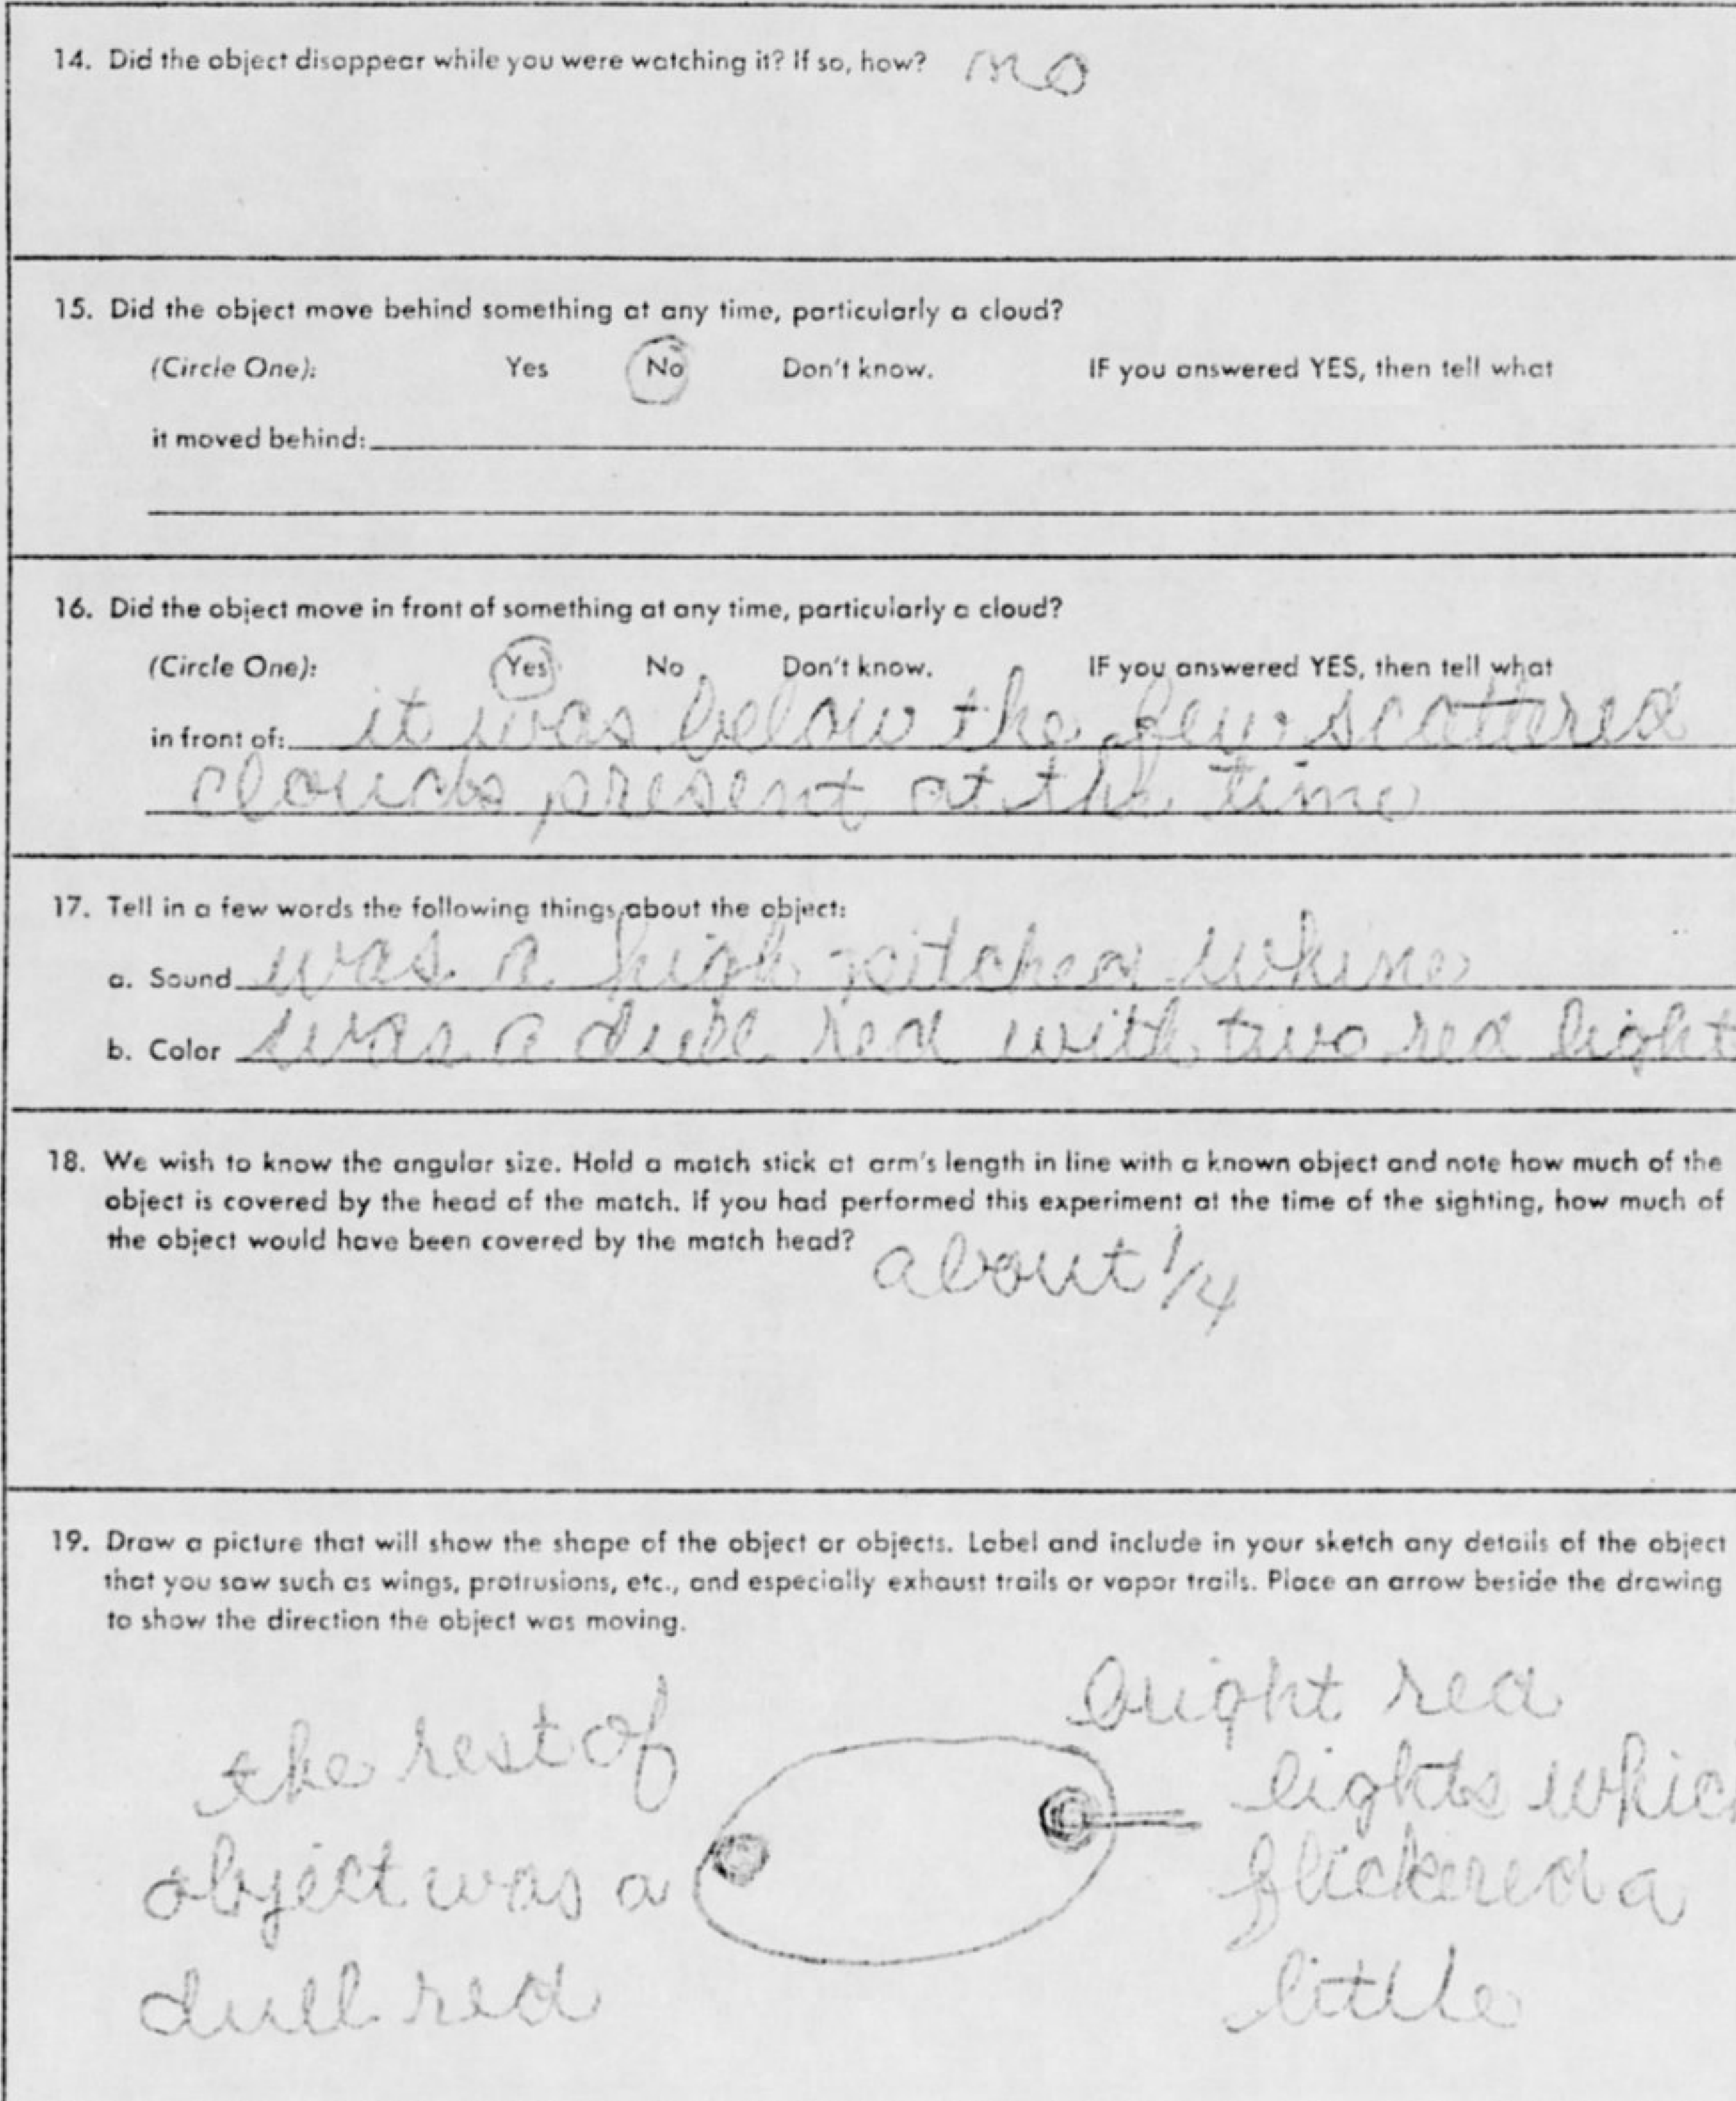 14. Did the object disappear while you were watching it? If so, how? no
15. Did the object move behind something at any time, particularly a cloud?
(Circle One): Yes No Don't know. IF you answered YES, then tell what
it moved behind:
16. Did the object move in front of something at any time, particularly a cloud?
(Circle One): Yes No Don't know. IF you answered YES, then tell what
in front of: it was below the few scattered
clouds present at the time
17. Tell in a few words the following things about the object:
a. Sound was a high pitched whine
b. Color was a dull red with two red light
18. We wish to know the angular size. Hold a match stick at arm's length in line with a known object and note how much of the
object is covered by the head of the match. If you had performed this experiment at the time of the sighting, how much of
the object would have been covered by the match head? about 1/4
19. Draw a picture that will show the shape of the object or objects. Label and include in your sketch any details of the object
that you saw such as wings, protrusions, etc., and especially exhaust trails or vapor trails. Place an arrow beside the drawing
to show the direction the object was moving.
the rest of
object was a
dull red
bright red
lights whic
flickered a
little